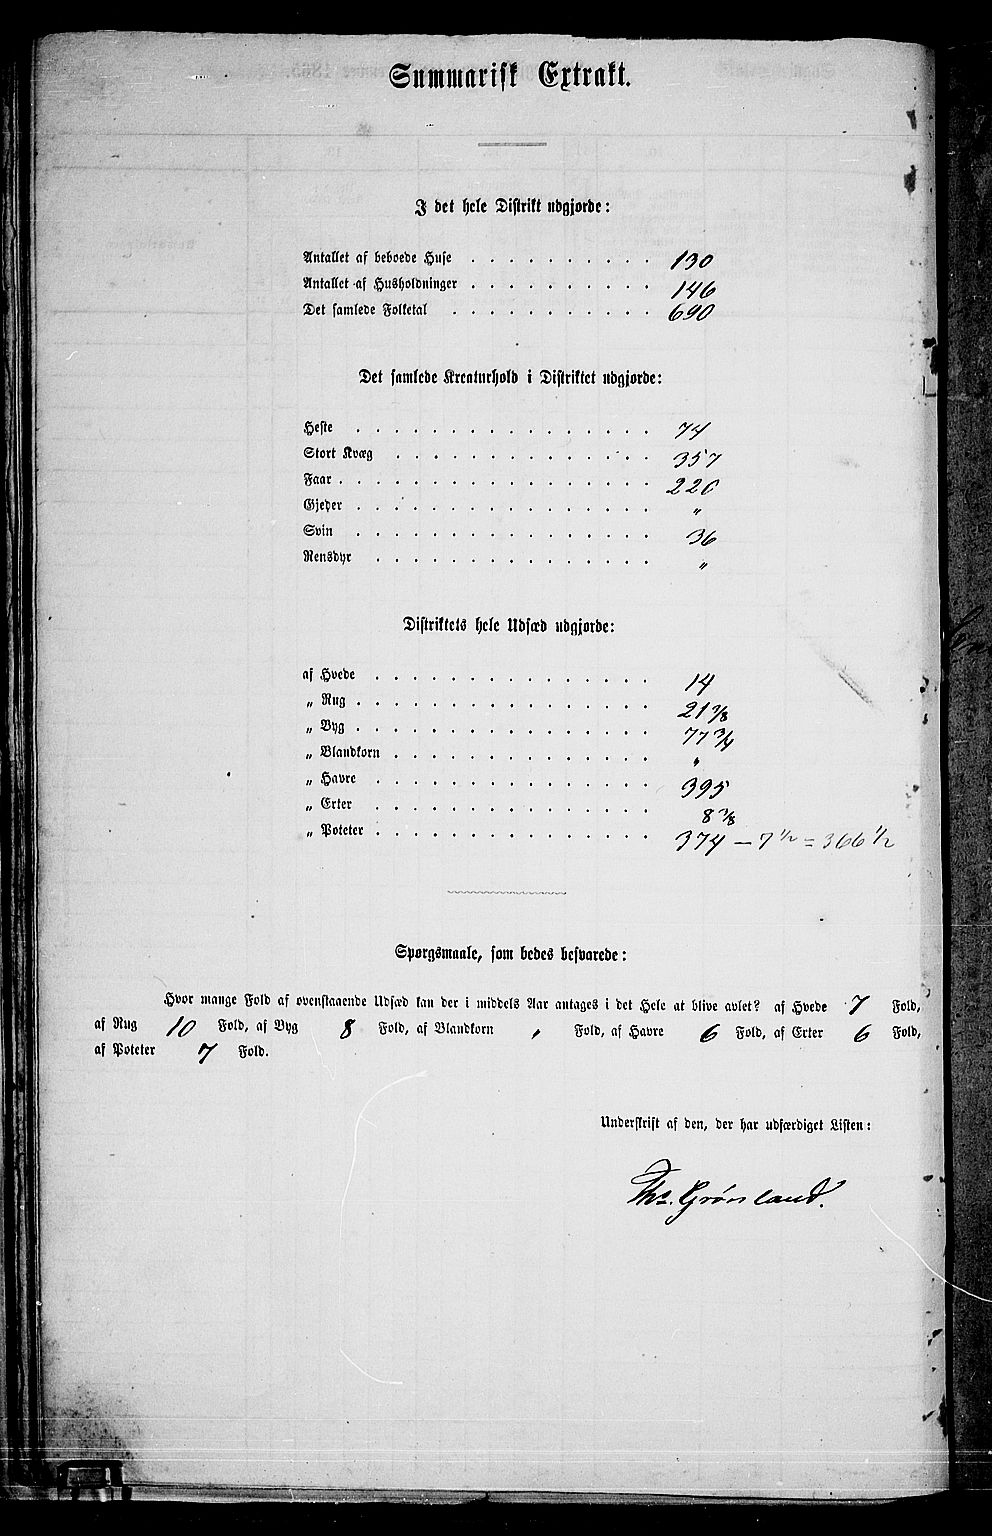 Summarisk Extrakt.
I det hele Distrikt udgjorde:
Antallet af beboede Huse . . . . . . . . . . 130
Antallet af Husholdninger . . . . . . . . . . 146
Det samlede Folketal . . . . . . . . . . . 690
Det samlede Kreaturhold i Distriktet udgjorde:
Heste . . . . . . . . . . . . . . . . 74
Stort Kvæg . . . . . . . . . . . . . . 357
Faar . . . . . . . . . . . . . . . . . 220
Gjeder . . . . . . . . . . . . . . . . "
Svin . . . . . . . . . . . . . . . . 36
Rensdyr . . . . . . . . . . . . . . . "
Distriktets hele Udsæd udgjorde:
af Hvede . . . . . . . . . . . . . . . 14
„ Rug . . . . . . . . . . . . . . . . 21 3/8
„ Byg . . . . . . . . . . . . . . . . 77 3/4
„ Blandkorn . . . . . . . . . . . . . . "
„ Havre . . . . . . . . . . . . . . . 395
„ Erter . . . . . . . . . . . . . . . 8 3/8
„ Poteter . . . . . . . . . . . . . . . 374 — 7 1/2 = 366 1/2
Spørgsmaale, som bedes besvarede:
Hvor mange Fold af ovenstaaende Udsæd kan der i middels Aar antages i det Hele at blive avlet? af Hvede 7 Fold,
af Rug 10 Fold, af Byg 8 Fold, af Blandkorn " Fold, af Havre 6 Fold, af Erter 6 Fold,
af Poteter 7 Fold.
Underskrift af den, der har udfærdiget Listen:
Ths. Grönsland.